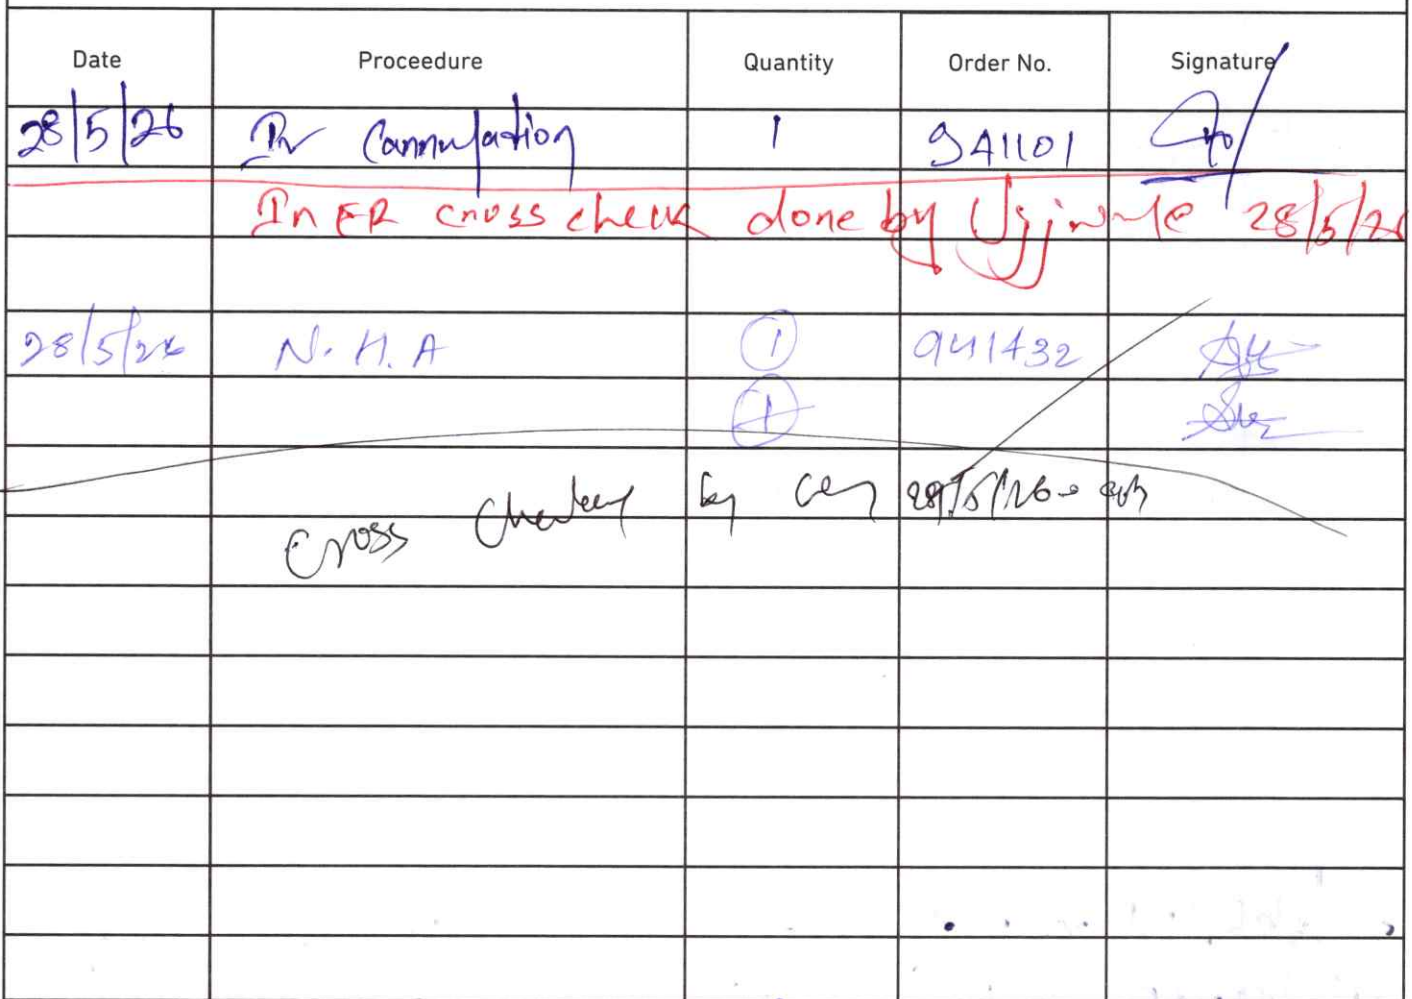 Date Proceedure Quantity Order No. Signature
28/5/26 IV Cannulation 1 941101
In ER cross check done by 28/5/26
28/5/26 N.H.A 1 941432
1
Cross by 28/5/26